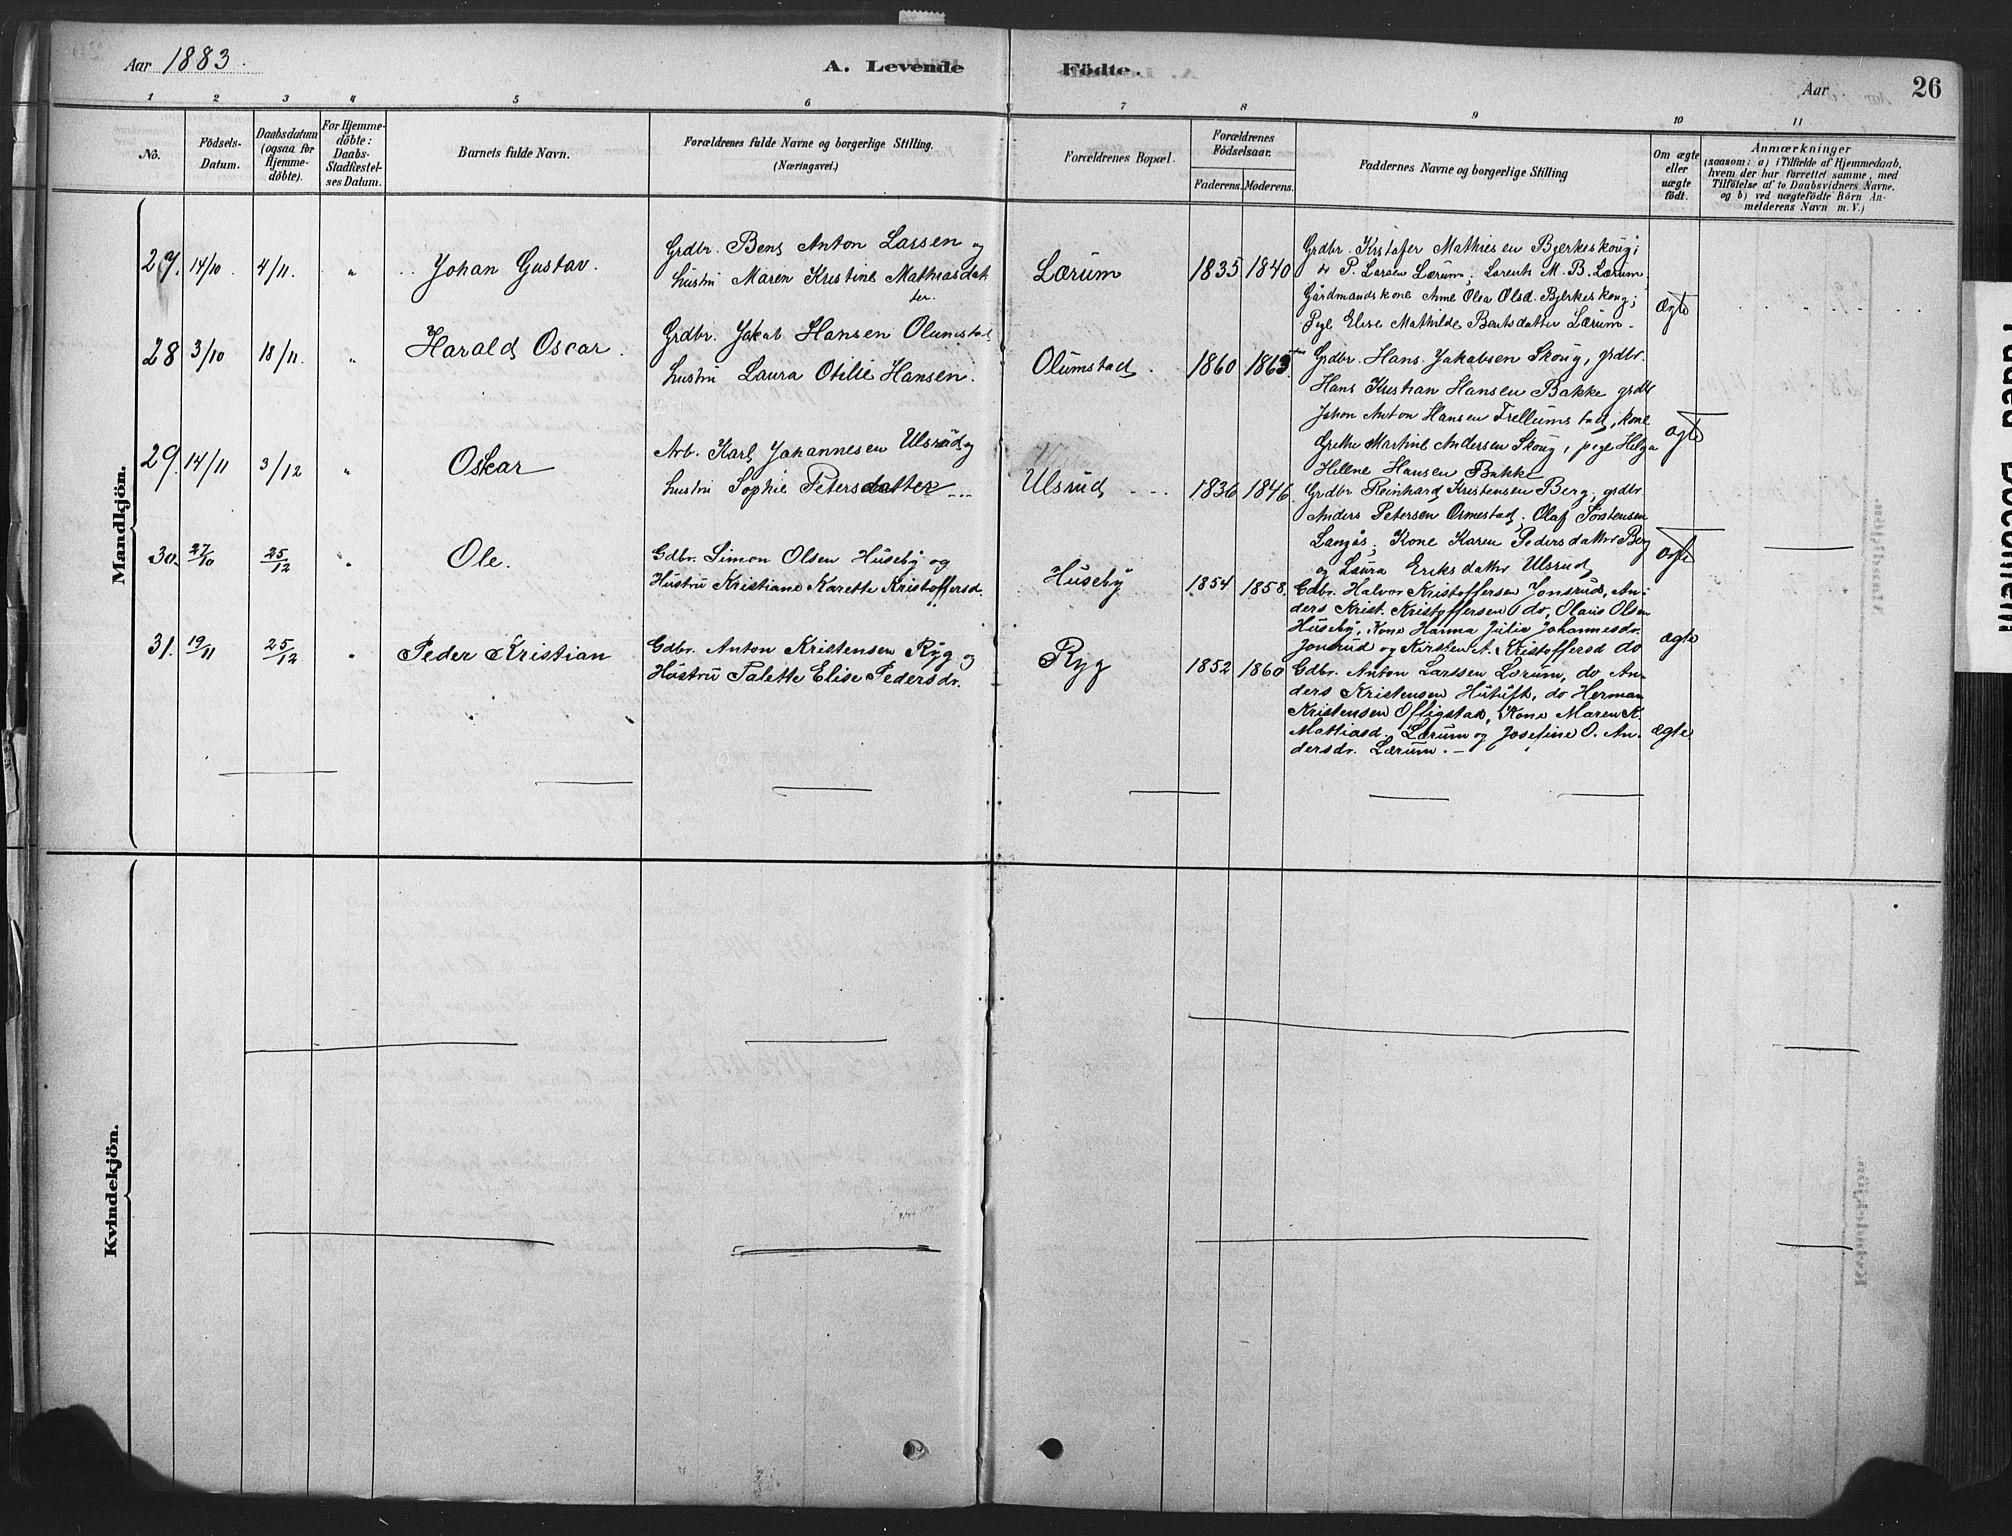 Aar 1883.
A. Levende Fødte.
Aar
26
1 2 3 4 5 6 7 8 9 10 11
No.
Födsels-Datum.
Daabsdatum (ogsaa for Hjemme-döbte).
For Hjemme-döbte: Daabs-Stadfæstel-ses Datum.
Barnets fulde Navn.
Forældrenes fulde Navne og borgerlige Stilling.
(Næringsvei.)
Forældrenes Bopæl.
Forældrenes Födselsaar.
Faderens. Moderens.
Faddernes Navne og borgerlige Stilling
Om ægte eller uægte födt.
Anmærkninger
(saasom: a) i Tilfælde af Hjemmedaab,
hvem der har forrettet samme, med
Tilföielse af to Daabsvidners Navne.
og b) ved uægtefödte Börn An-
melderens Navn m. V.)
Mandkjön.
27. 14/10. 4/11. " Johan Gustav.
Grdbr. Bent Anton Larsen og
hustru Maren Kristine Mathiasdat-
ter.
Lærum 1835 1840
Grdbr. Kristofer Mathiesen Bjerkeskoug;
P. Larsen Lærum; Lorents M. B. Lærum
Gårdmandskone Anne Olea Olsd. Bjerkeskoug;
Pige Elise Mathilde Bentsdatter Lærum.
ægte
28 3/10 18/11. " Harald Oscar.
Grdbr. Jakob Hansen Olumstad
hustru Laura Otilie Hansen.
Olumstad. 1860 1863
Grdbr. Hans Jakobsen Skoug, grdbr.
Hans Kristian Hansen Bakke grdbr
Johan Anton Hansen Frellumstad, kone
Grethe Martine Andersen Skoug, pige Helga
Hellene Hansen Bakke
ægte
29. 14/11 3/12 " Oskar
Arb. Karl Johannesen Ulsrud og
hustru Sophie Petersdatter
Ulsrud 1836 1846.
Grdbr Reinhard Kristensen Berg; grdbr.
Anders Petersen Ormestad; Olaf Torstensen
Langås; Kone Karen Pedersdatter Berg
og Laura Eriksdatter Ulsrud
ægte
30. 27/10 25/12 " Ole.
Gdbr. Simon Olsen Huseby og
Hustru Kristiane Karette Kristoffersd.
Huseby 1854 1858.
Gdbr. Halvor Kristoffersen Jonsrud, An-
ders Krist. Kristoffersen do, Olaus Olsen
Huseby, Kone Hanna Julie Johannesdr.
Jonsrud og Kirsten A. Kristoffersd do
ægte
31. 19/11 25/12 " Peder Kristian
Gdbr. Anton Kristensen Ryg og
Hustru Talette Elise Pedersdr.
Ryg 1852 1860
Gdbr. Anton Larssen Lærum, do An-
ders Kristensen Hutuft, do Herman
Kristensen Ofligstad, Kone Maren K.
Mattiasd. Lærum og Josefine O. An-
dersdr. Lærum.
ægte
Kvindekjön.